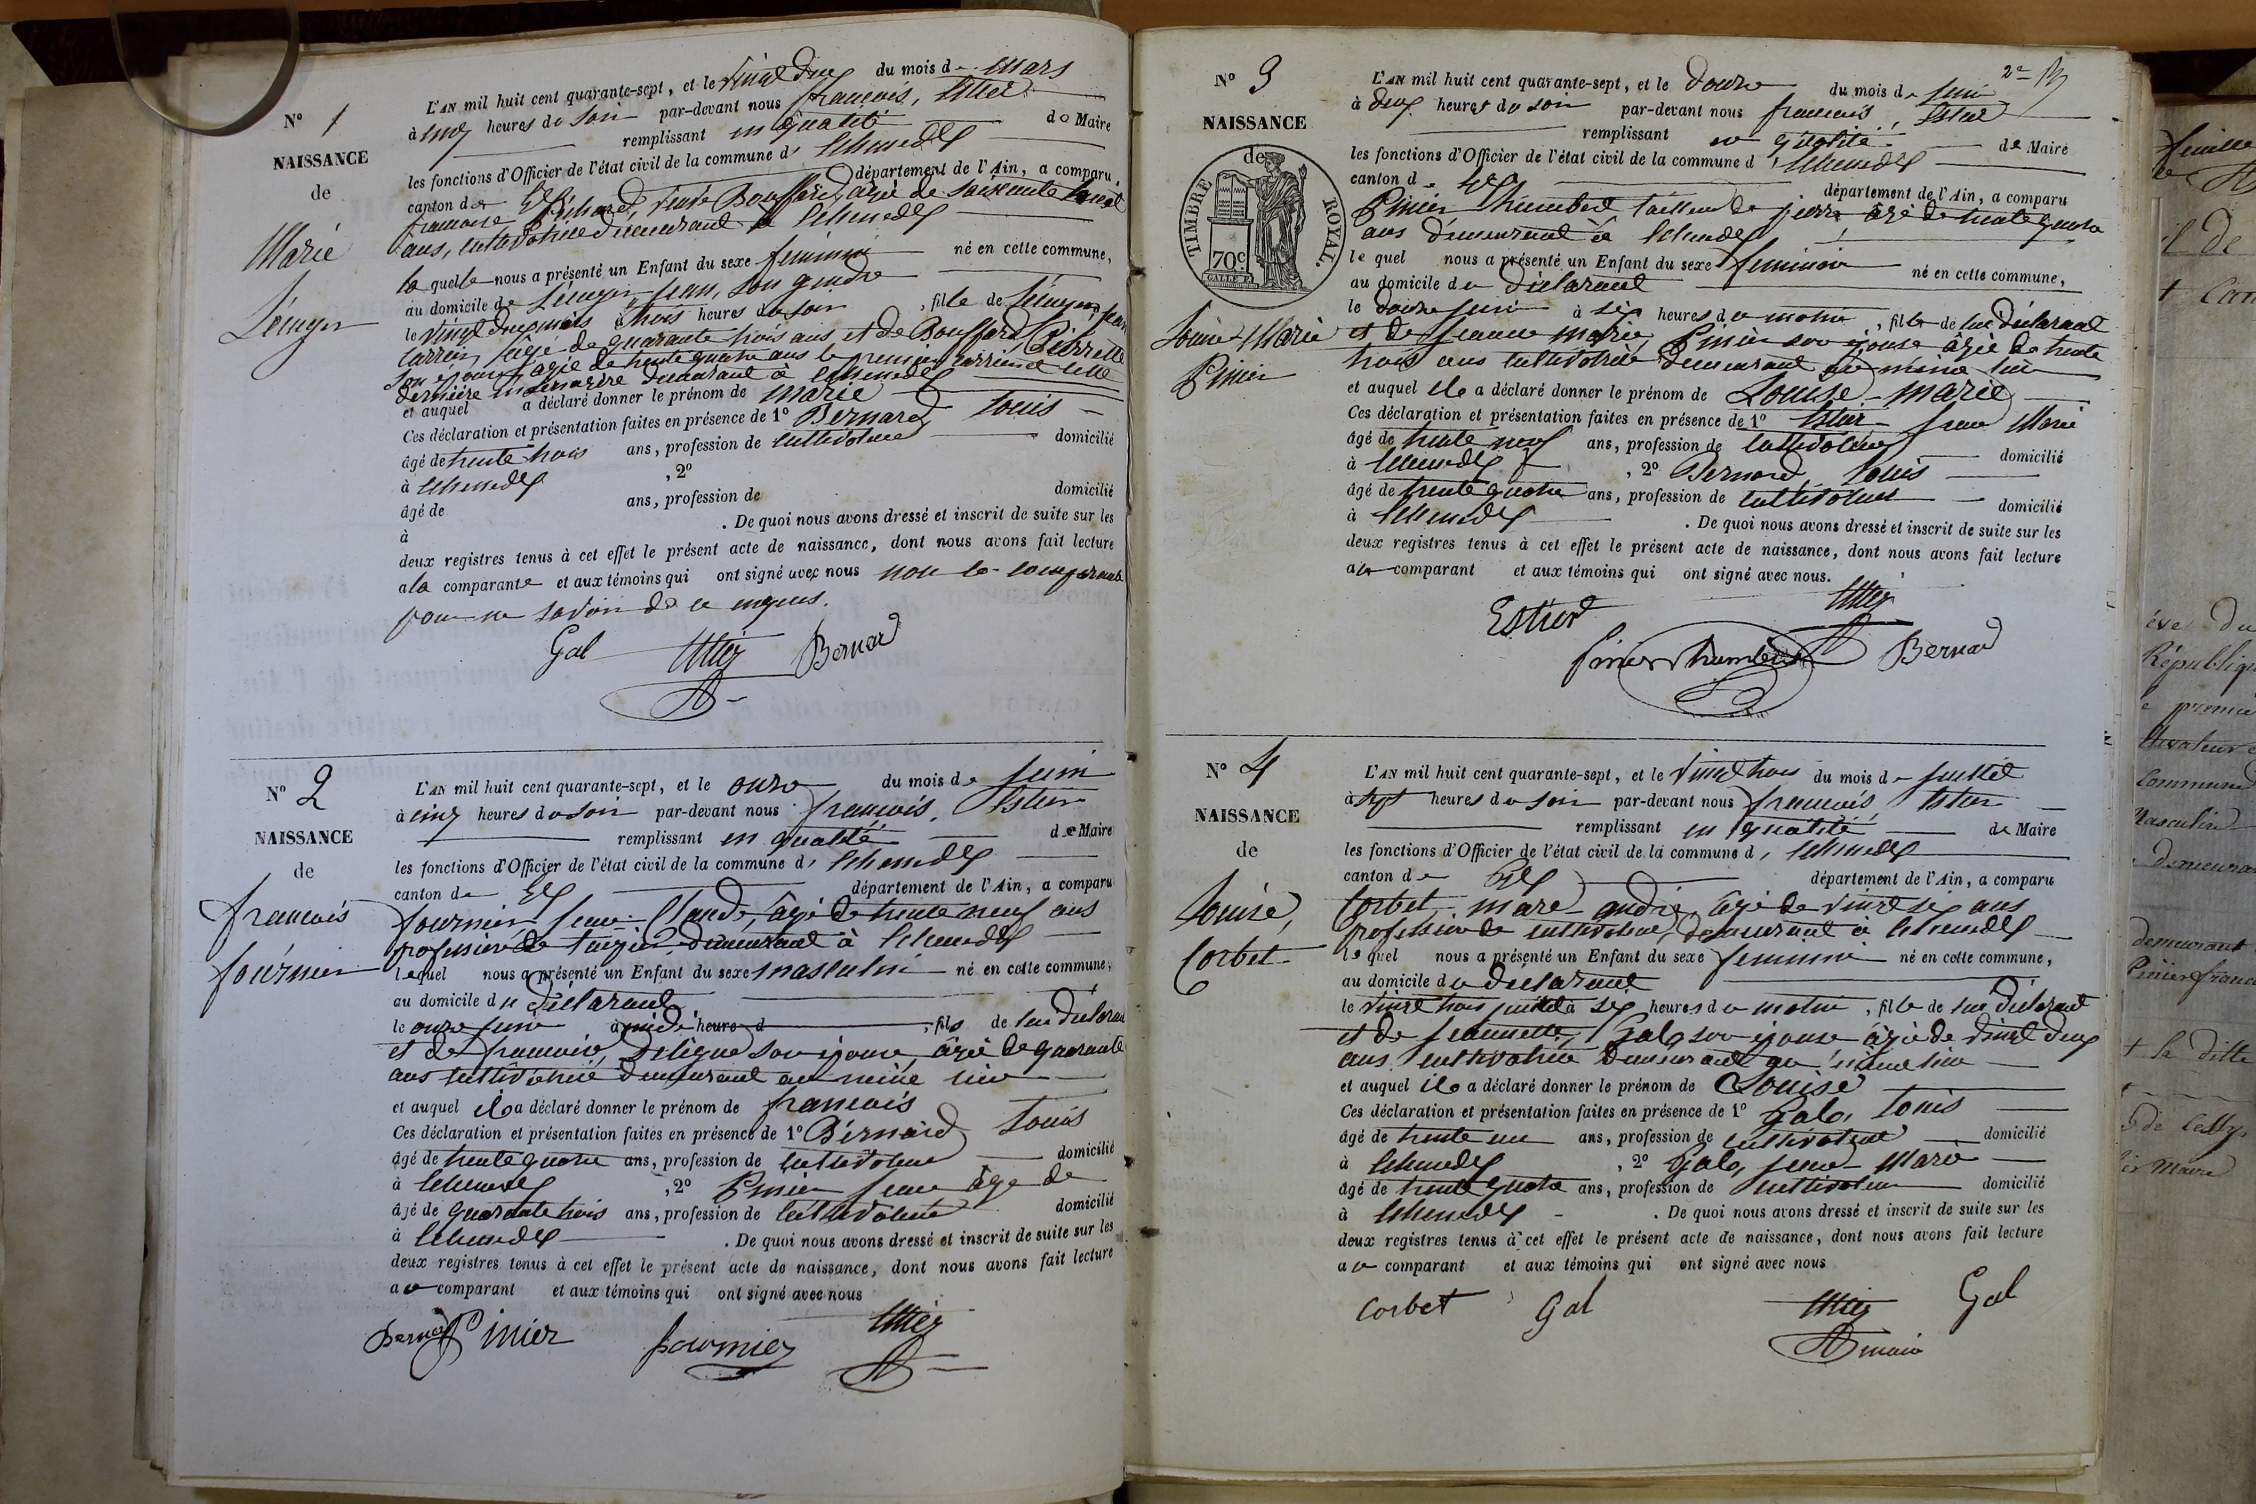 N° 1
NAISSANCE
de
Marie
L'AN mil huit cent quarante-sept, et le vingt deux du mois de mars
à cinq heures du soir par-devant nous françois,
remplissant en qualité de Maire
les fonctions d'Officier de l'état civil de la commune d'
canton de département de l'Ain, a comparu
françoise veuve Bouffard, agée de soixante
ans, cultivatrice demeurant à
la quelle nous a présenté un Enfant du sexe feminin né en cette commune,
au domicile de jean, son gendre
le vingt deux mars à trois heures du soir, fille de jean
carrier, âgé de quarante trois ans, et de Bouffard Pierrette
son épouse agée de trente quatre ans le premier carrier et cette
dernière demeurant à
et auquel a déclaré donner le prénom de marie
Ces déclaration et présentation faites en présence de 1° Bernard Louis
âgé de trente trois ans, profession de cultivateur domicilié
à , 2°
âgé de ans, profession de domicilié
à . De quoi nous avons dressé et inscrit de suite sur les
deux registres tenus à cet effet le présent acte de naissance, dont nous avons fait lecture
a la comparante et aux témoins qui ont signé avec nous non la comparante
pour ne savoir de ce enquis.
Gal Bernard
N° 2
NAISSANCE
de
francois
fournier
L'AN mil huit cent quarante-sept, et le onze du mois de juin
à cinq heures du soir par-devant nous francois,
remplissant en qualité de Maire
les fonctions d'Officier de l'état civil de la commune d'
canton de département de l'Ain, a comparu
fournier jean Claude, âgé de trente neuf ans
profession de demeurant à
lequel nous a présenté un Enfant du sexe masculin né en cette commune,
au domicile du déclarant
le onze juin à midi heure d , fils de lui déclarant
et de francoise, son épouse, âgée de quarante
ans cultivatrice demeurant au même lieu
et auquel il a déclaré donner le prénom de francois
Ces déclaration et présentation faites en présence de 1° Bernard Louis
âgé de trente quatre ans, profession de cultivateur domicilié
à , 2° Pinier jean âge de
âgé de quarante trois ans, profession de cultivateur domicilié
à . De quoi nous avons dressé et inscrit de suite sur les
deux registres tenus à cet effet le présent acte de naissance, dont nous avons fait lecture
au comparant et aux témoins qui ont signé avec nous
Bernard Pinier fournier
2e
N° 3
NAISSANCE
de
TIMBRE ROYAL.
70c.
Louise Marie
Pinier
L'AN mil huit cent quarante-sept, et le douze du mois de juin
à deux heures du soir par-devant nous francois,
remplissant en qualité de Maire
les fonctions d'Officier de l'état civil de la commune d'
canton de département de l'Ain, a comparu
Pinier Humbert tailleur de pierre, âgé de trente quatre
ans demeurant à
lequel nous a présenté un Enfant du sexe feminin né en cette commune,
au domicile du déclarant
le douze juin à six heures du matin, fille de lui déclarant
et de jeanne marie, Pinier son épouse âgée de trente
trois ans cultivatrice demeurant au même lieu
et auquel il a déclaré donner le prénom de Louise-marie
Ces déclaration et présentation faites en présence de 1° jean Marie
âgé de trente neuf ans, profession de cultivateur domicilié
à , 2° Bernard, Louis
âgé de trente quatre ans, profession de cultivateur domicilié
à . De quoi nous avons dressé et inscrit de suite sur les
deux registres tenus à cet effet le présent acte de naissance, dont nous avons fait lecture
au comparant et aux témoins qui ont signé avec nous.
pinier humbert Bernard
N° 4
NAISSANCE
de
Louise,
Corbet
L'AN mil huit cent quarante-sept, et le vingt trois du mois de juillet
à sept heures du soir par-devant nous francois
remplissant en qualité de Maire
les fonctions d'Officier de l'état civil de la commune d'
canton de département de l'Ain, a comparu
Corbet marc andré, âgé de vingt six ans
profession de cultivateur, demeurant à
lequel nous a présenté un Enfant du sexe feminin né en cette commune,
au domicile du déclarant
le vingt trois juillet à six heures du matin, fille de lui déclarant
et de jeannette, Gal, son épouse âgée de vingt deux
ans cultivatrice demeurant au même lieu
et auquel il a déclaré donner le prénom de Louise
Ces déclaration et présentation faites en présence de 1° Gal, Louis
âgé de trente un ans, profession de cultivateur domicilié
à , 2° Gal, jean Marie
âgé de trente quatre ans, profession de cultivateur domicilié
à . De quoi nous avons dressé et inscrit de suite sur les
deux registres tenus à cet effet le présent acte de naissance, dont nous avons fait lecture
au comparant et aux témoins qui ont signé avec nous
corbet Gal Gal
maire